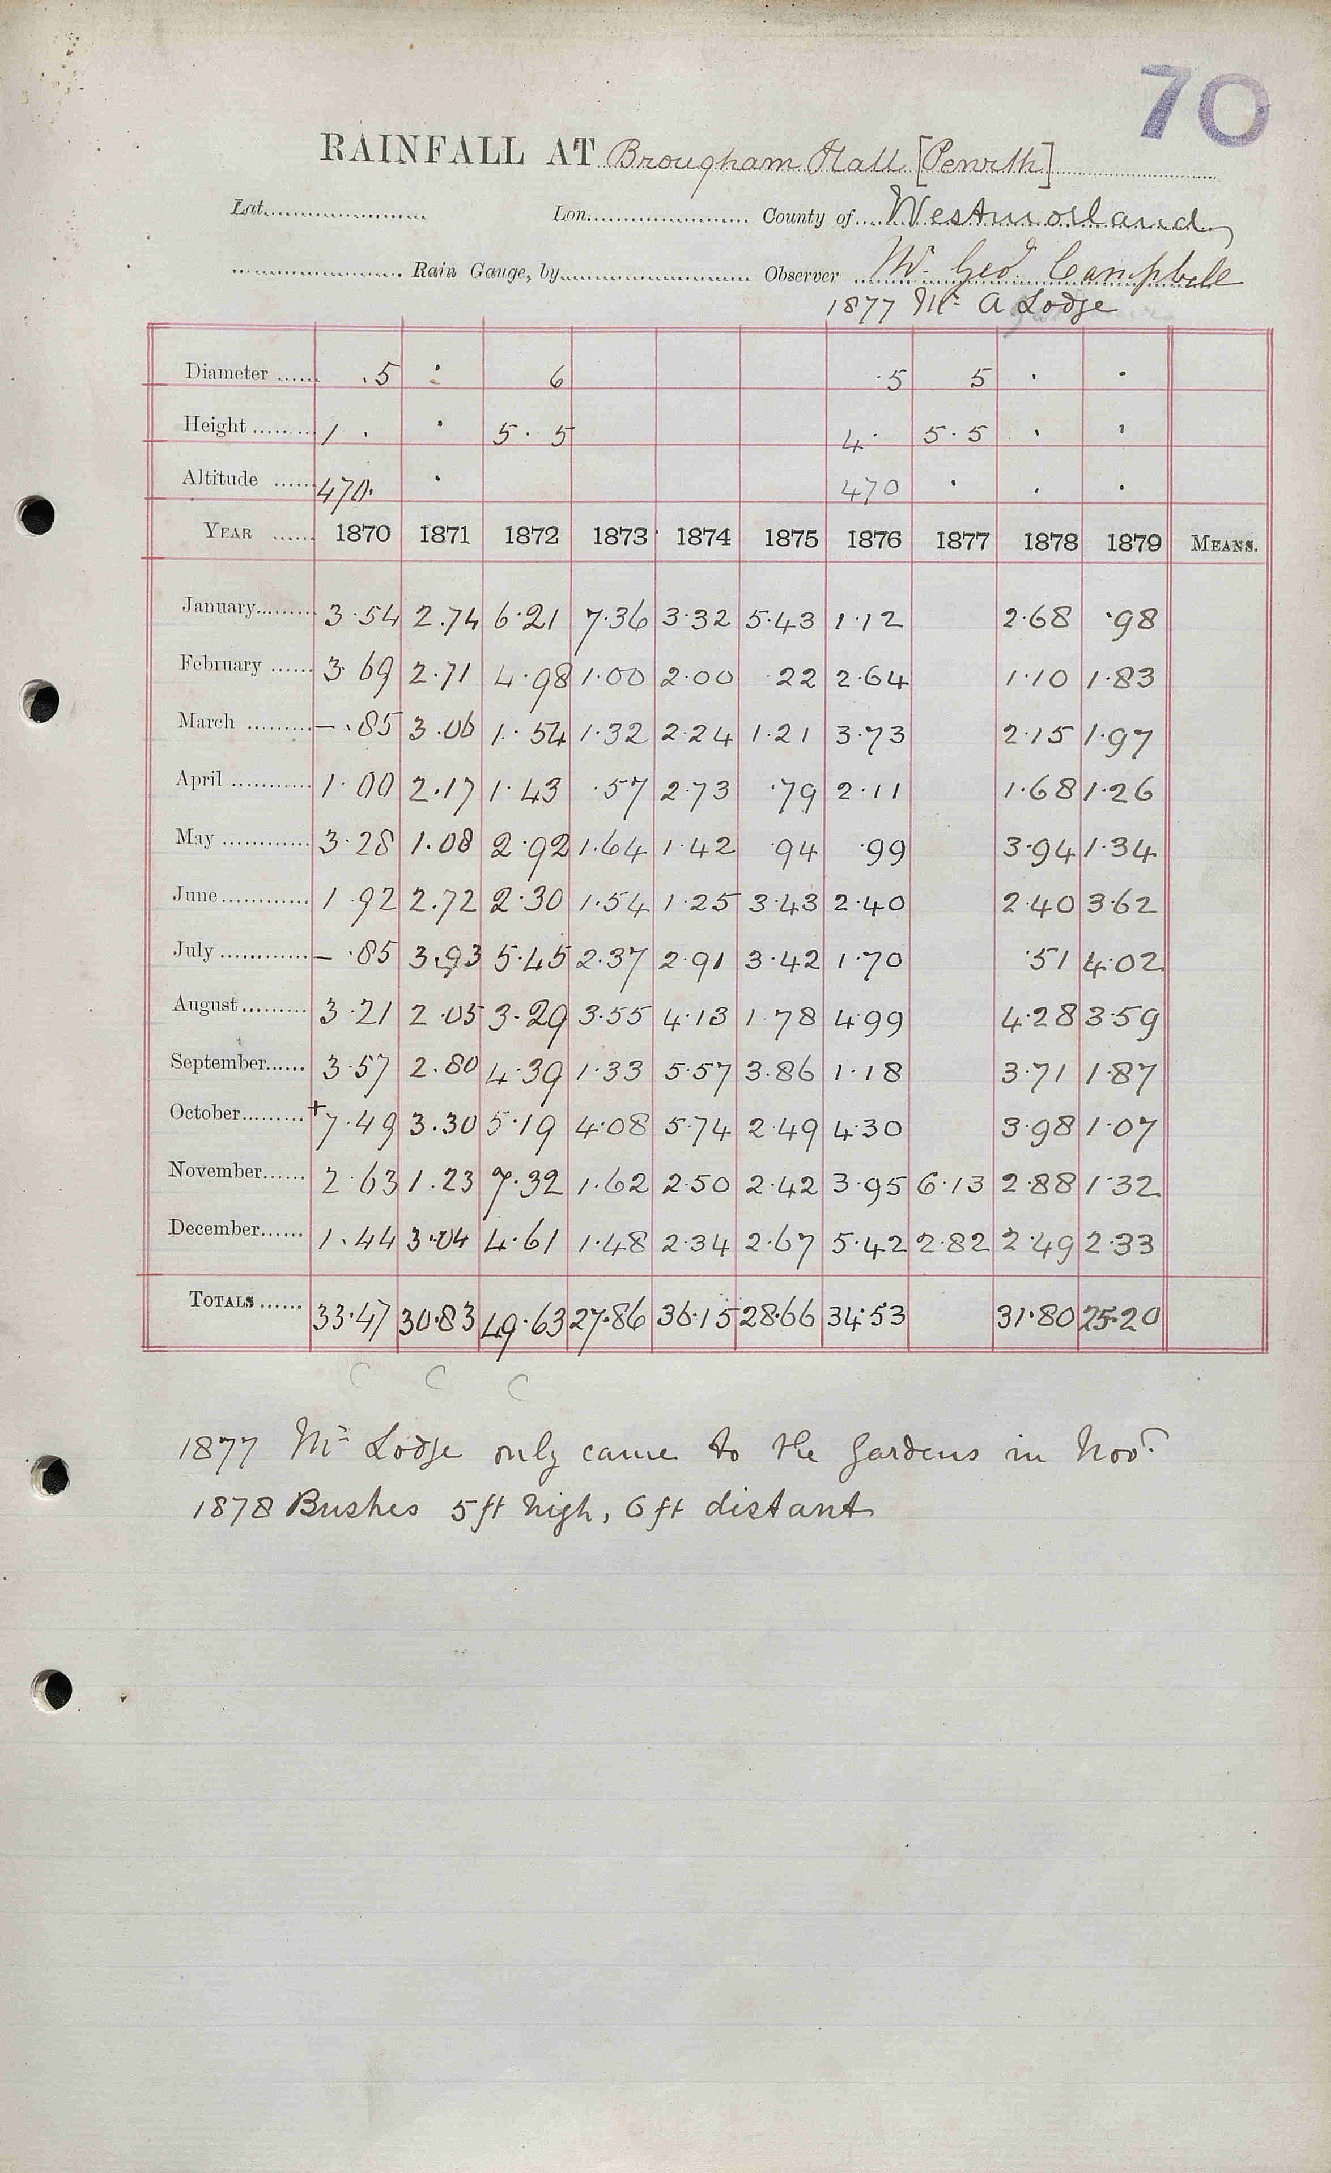 70
RAINFALL AT Brougham Hall [Penrith]
Lat. Lon. County of Westmorland
Rain Gauge, by Observer Mr. Geo. Campbell
1877 Mr. A Lodge
Diameter 5 · 6 5 5 · ·
Height 1 · · 5·5 4· 5·5 · ·
Altitude 470· · 470 · · ·
YEAR 1870 1871 1872 1873 1874 1875 1876 1877 1878 1879 MEANS.
January 3·54 2.74 6·21 7·36 3·32 5·43 1·12 2·68 ·98
February 3·69 2.71 4·98 1·00 2·00 ·22 2·64 1·10 1·83
March – ·85 3·06 1·54 1·32 2·24 1·21 3·73 2·15 1·97
April 1·00 2.17 1·43 ·57 2·73 ·79 2·11 1·68 1·26
May 3·28 1.08 2·92 1·64 1·42 ·94 ·99 3·94 1·34
June 1·92 2.72 2·30 1·54 1·25 3·43 2·40 2·40 3·62
July – ·85 3.93 5·45 2·37 2·91 3·42 1·70 ·51 4·02
August 3·21 2·05 3·29 3·55 4·13 1·78 4·99 4·28 3·59
September 3·57 2.80 4·39 1·33 5·57 3·86 1·18 3·71 1·87
October +7·49 3.30 5·19 4·08 5·74 2·49 4·30 3·98 1·07
November 2·63 1.23 7·32 1·62 2·50 2·42 3·95 6·13 2·88 1·32
December 1·44 3·04 4·61 1·48 2·34 2·67 5·42 2·82 2·49 2·33
TOTALS 33·47 30·83 49·63 27·86 36·15 28·66 34·53 31·80 25·20
C C C
1877 Mr Lodge only came to the gardens in Novr.
1878 Bushes 5 ft high, 6 ft distant